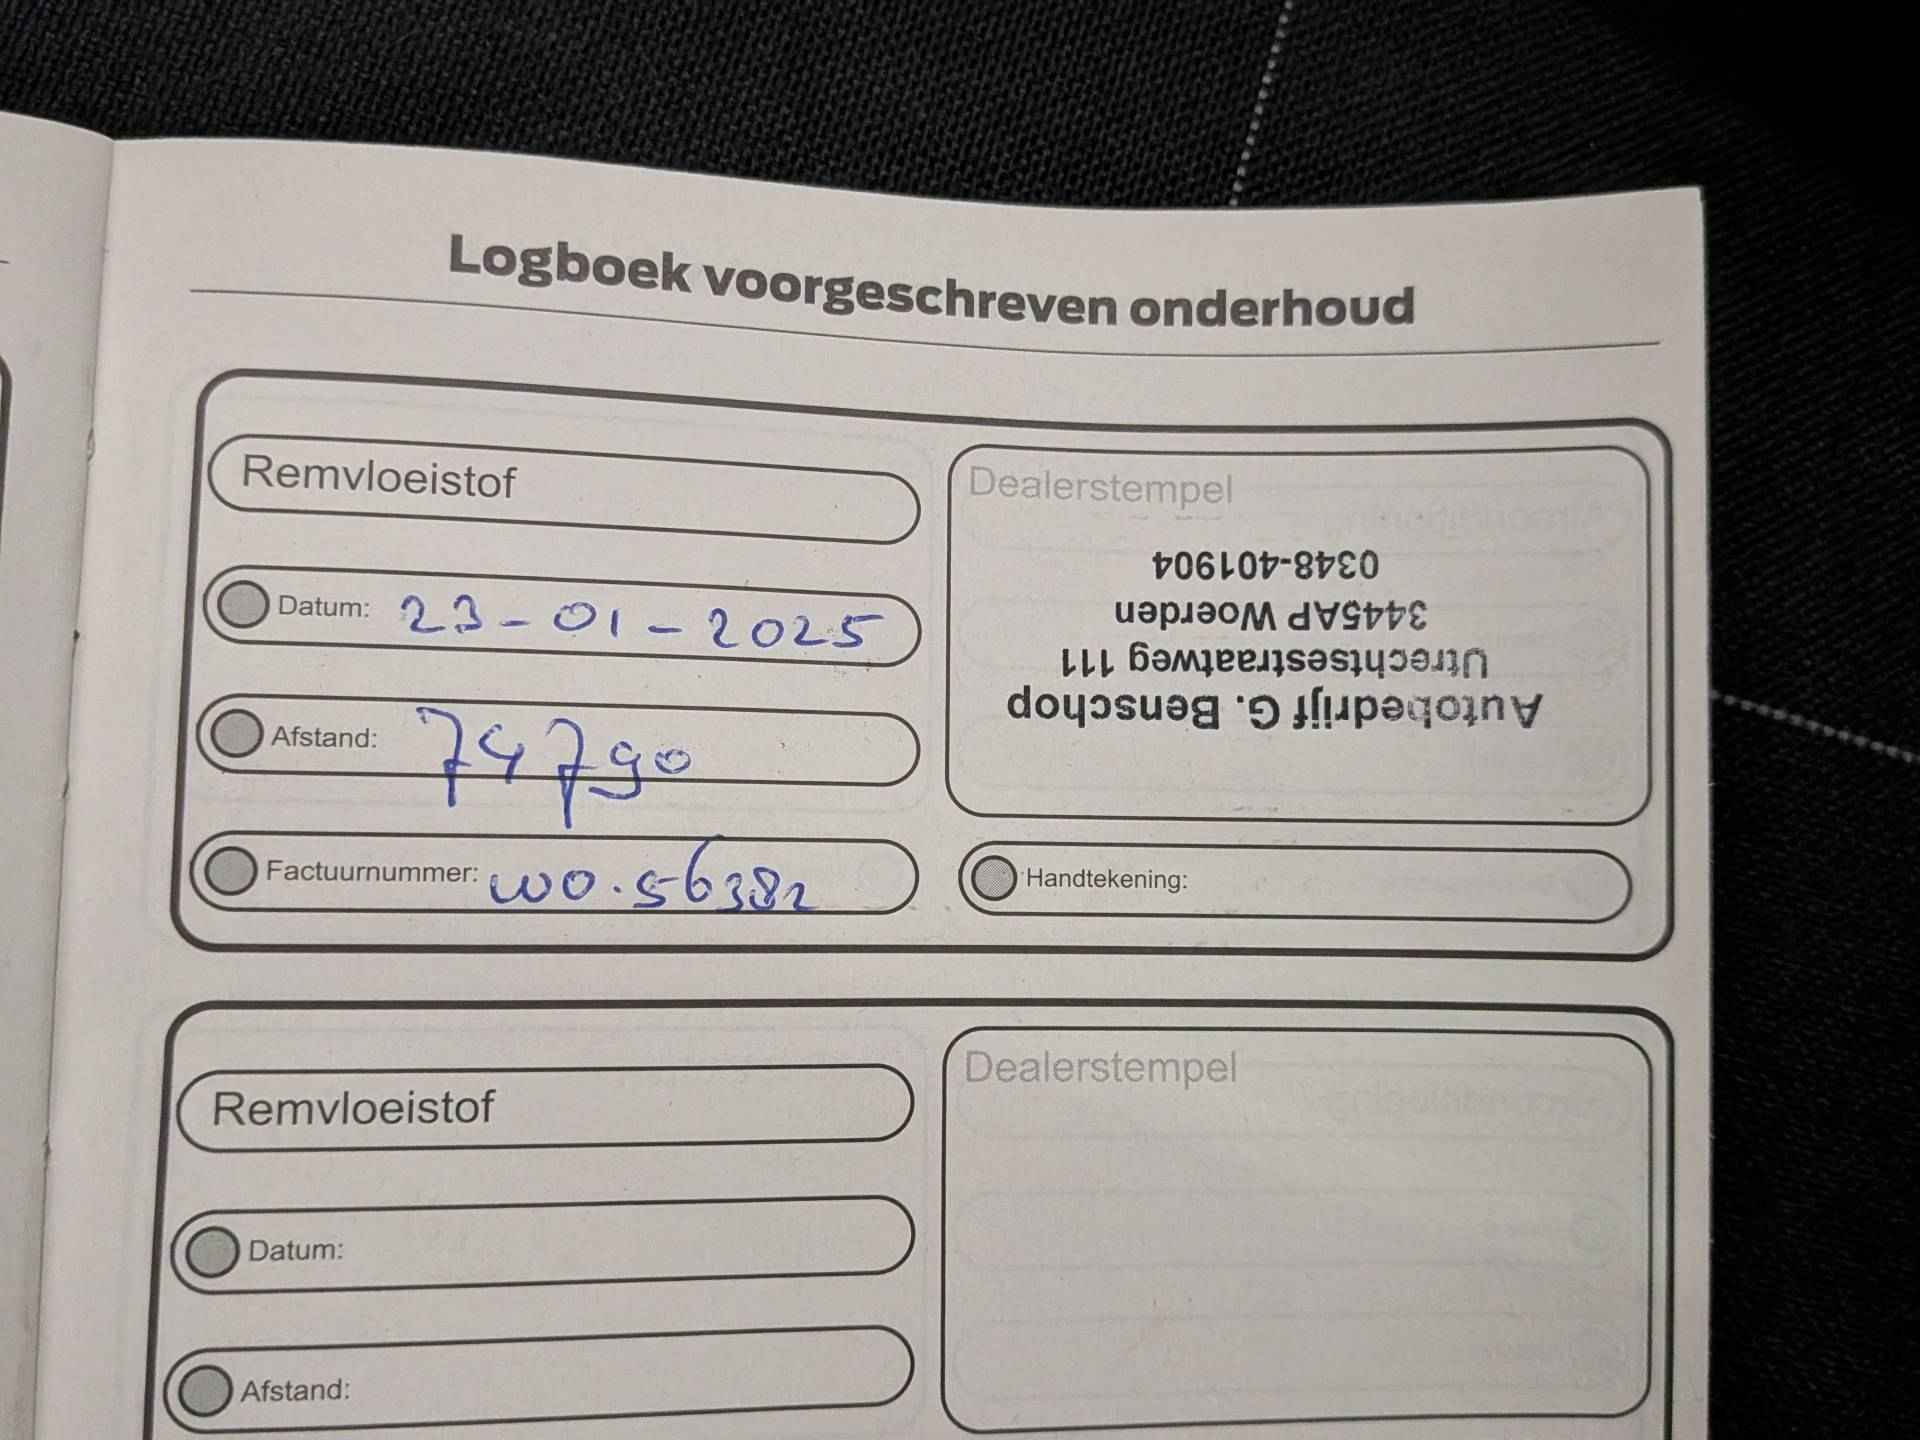 Logboek voorgeschreven onderhoud
Remvloeistof
Datum: 23-01-2025
Afstand: 74790
Factuurnummer: WO.56382
Dealerstempel
Autobedrijf G. Benschop
Utrechtsestraatweg 111
3445AP Woerden
0348-401904
Handtekening:
Remvloeistof
Datum:
Afstand:
Dealerstempel